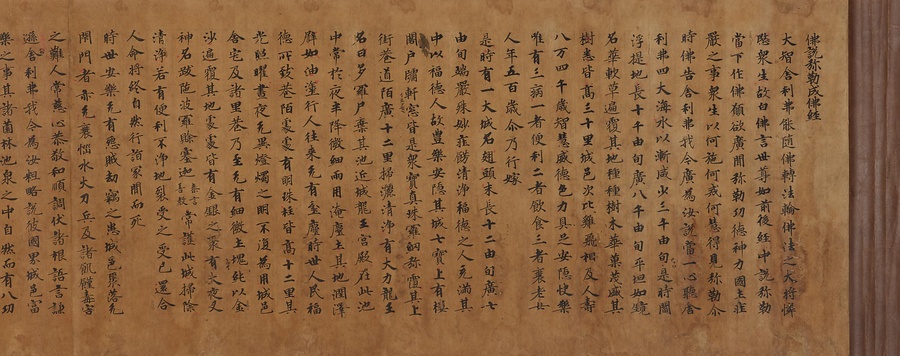 佛說弥勒成佛經
大智舍利弗能随佛轉法輪佛法之大將憐
愍衆生故白佛言世尊如前後經中說弥勒
當下作佛願欲廣聞弥勒功德神力國土莊
嚴之事衆生以何施何戒何慧得見弥勒尒
時佛告舍利弗我今廣為汝說當一心聽舍
利弗四大海水以漸減少三千由旬是時閻
浮提地長十千由旬廣八千由旬平坦如鏡
名華軟草遍覆其地種種樹木華菓茂盛其
樹悉皆高三十里城邑次比雞飛相及人壽
八万四千歲智慧威德色力具足安隐快樂
唯有三病一者便利二者飲食三者衰老女
人年五百歲尒乃行嫁
是時有一大城名翅頭末長十二由旬廣七
由旬端嚴殊妙莊嚴清淨福德之人充滿其
中以福德人故豊樂安隐其城七寶上有樓
閣戶牖軒窓皆是衆寶真珠羅網弥覆其上
街巷道陌廣十二里掃灑清淨有大力龍王
名曰多羅尸棄其池近城龍王宮殿在此池
中常於夜半降微細雨用淹塵土其地潤澤
辟如油塗行人往来无有塵坌時世人民福
德所致巷陌處處有明珠柱皆高十二里其
光照曜晝夜无異燈燭之明不復為用城邑
舍宅及諸里巷乃至无有細微土塊純以金
沙遍覆其地處處皆有金銀之聚有大夜叉
神名跋陁波羅賒塞迦 常護此城掃除
清淨若有便利不淨地裂受之受已還合
人命將終自然行詣冢間而死
時世安樂无有怨賊劫竊之患城邑聚落无
閇門者亦无衰惱水火刀兵及諸飢饉毒害
之難人常慈心恭敬和順調伏諸根語言謙
遜舍利弗我今為汝粗略說彼國界城邑富
樂之事其諸園林池泉之中自然而有八功